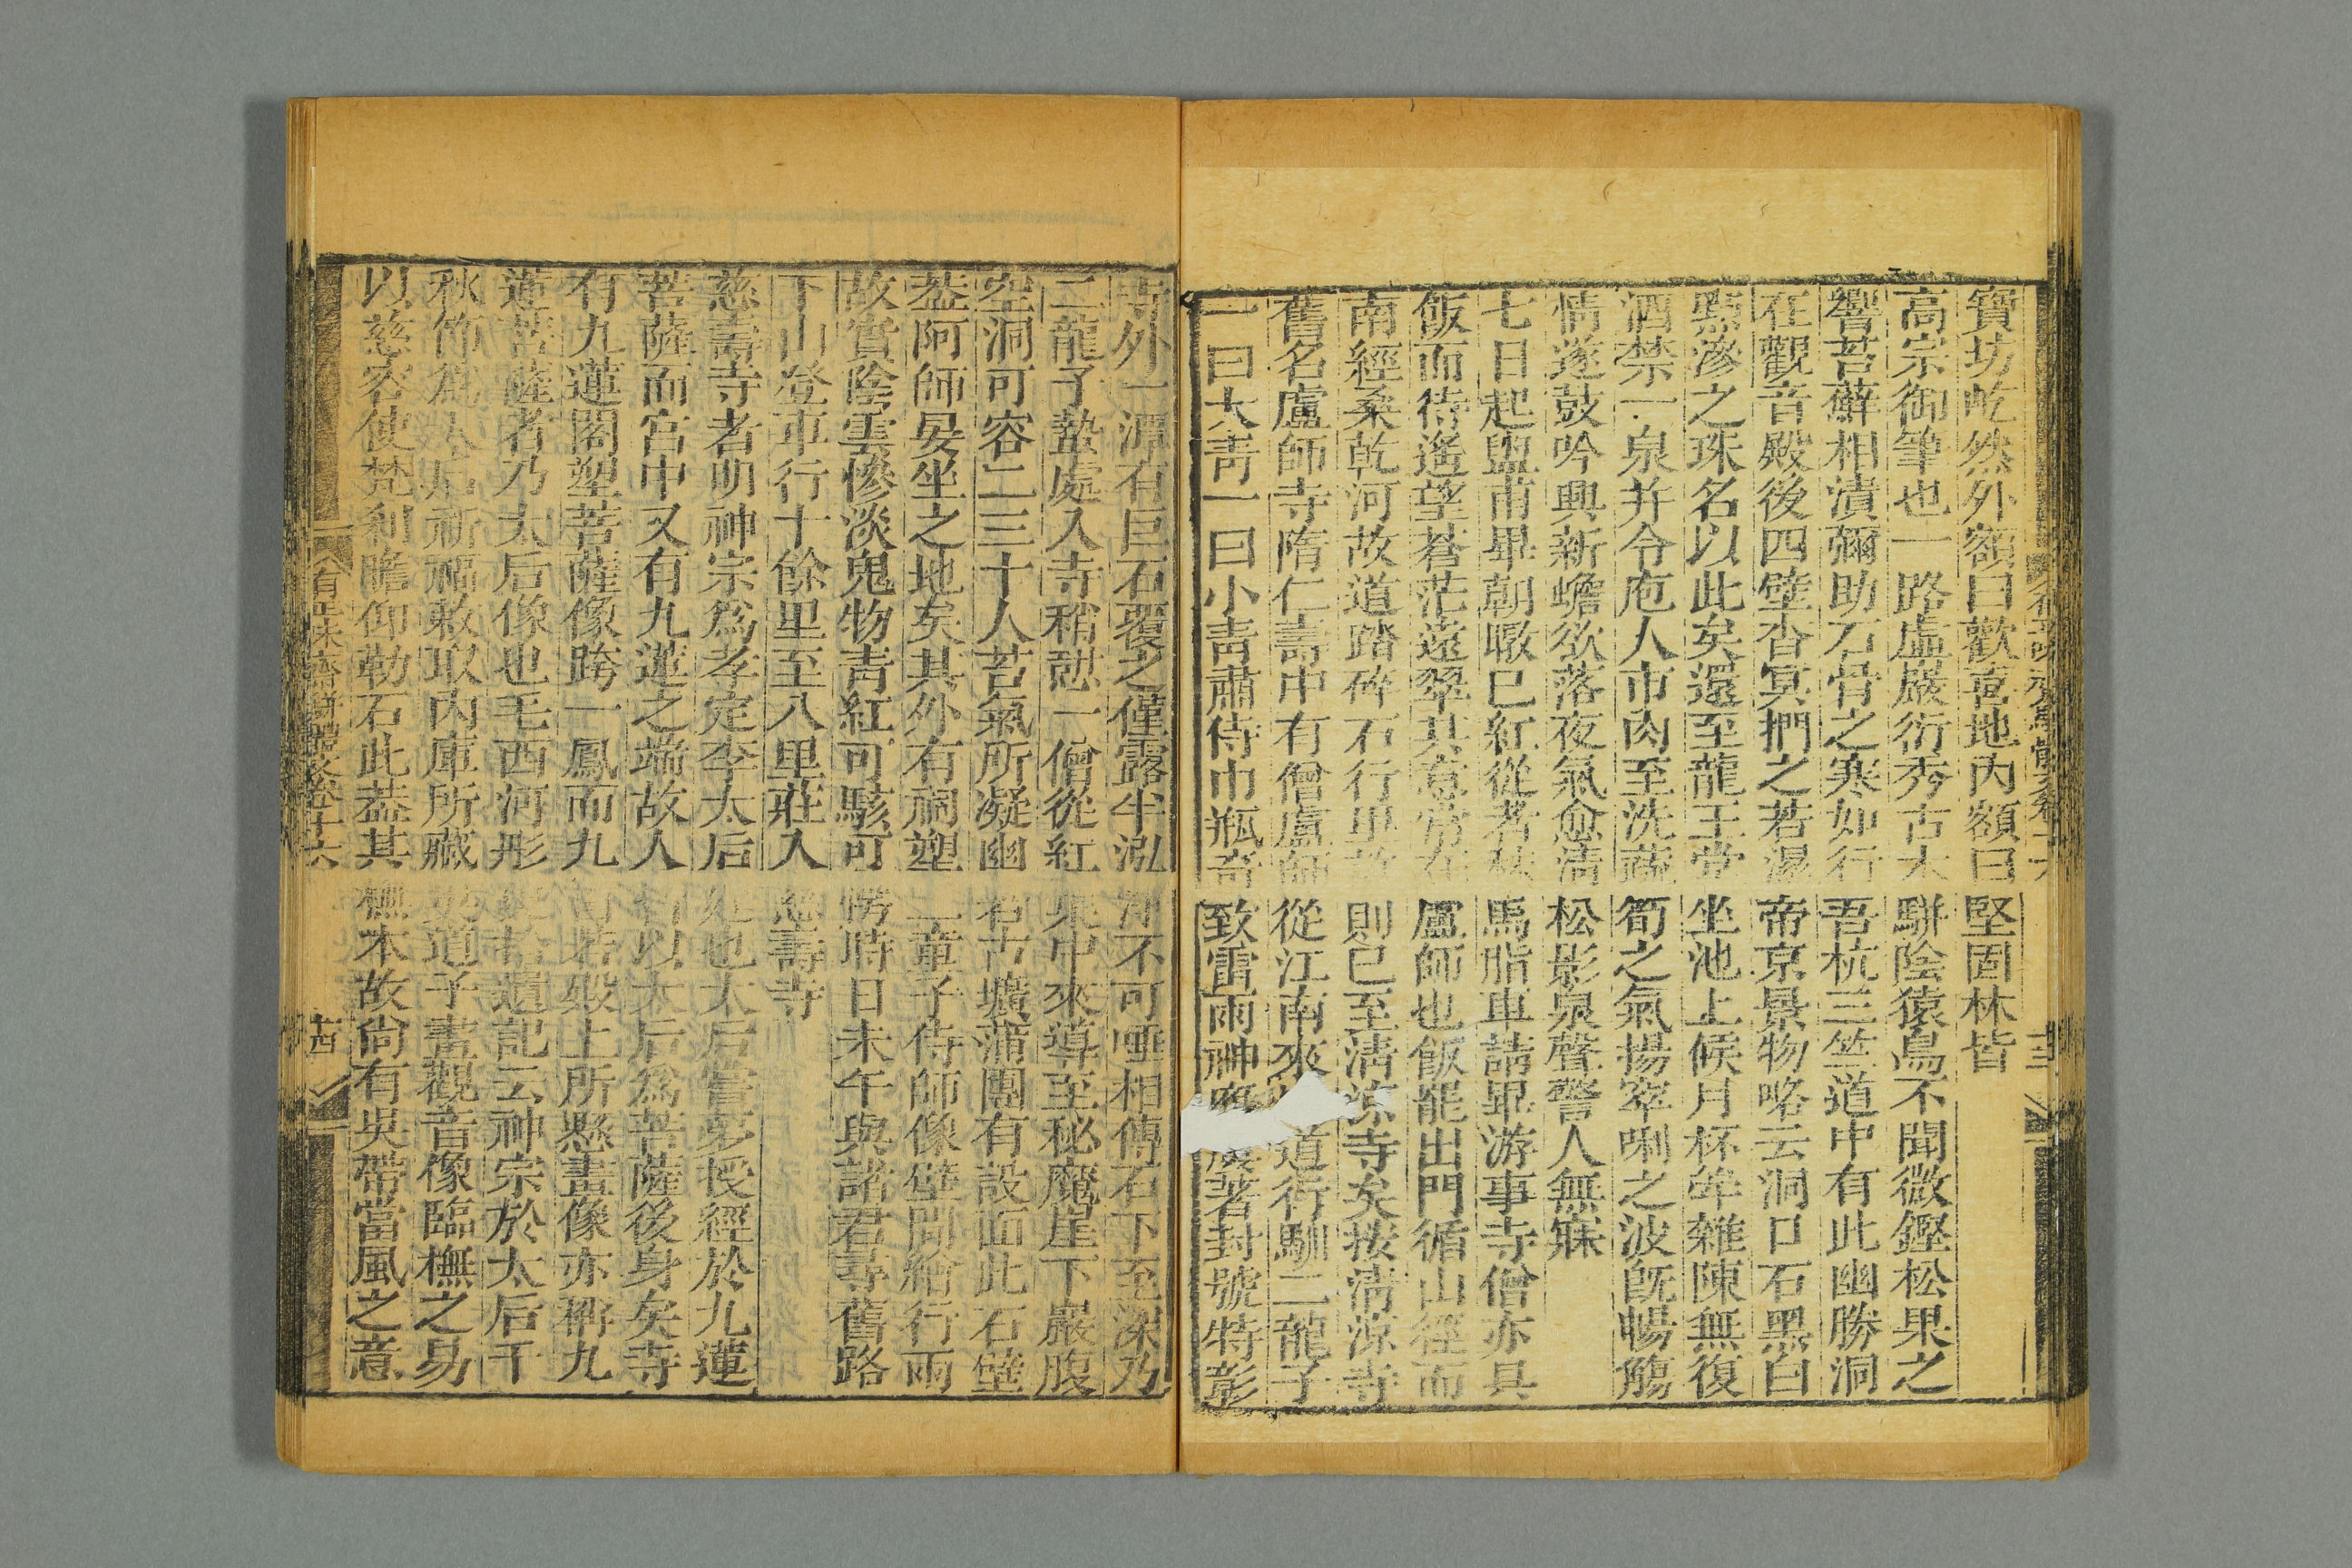 寶坊屹然外額曰歡喜地內額曰堅固林皆
高宗御筆也一路虛巖衍秀古木駢陰猿鳥不聞微鏗松果之
響苔蘚相漬彌助石骨之寒如行吾杭三竺道中有此幽勝洞
在觀音殿後四壁杳冥捫之若濕帝京景物略云洞口石黑白
點滲之珠名以此矣還至龍王堂坐池上候月杯斝雜陳無復
酒禁一泉并令庖人市肉至洗蔬筍之氣揚窣唎之波旣暢觴
情遂鼓吟興新蟾欲落夜氣愈淸松影泉聲警人無寐
七日起盥甫畢朝暾已紅從者秣馬脂車請畢游事寺僧亦具
飯而待遙望蒼茫遠翠其意常在盧師也飯罷出門循山徑而
南經桑乾河故道踏碎石行里許則已至淸涼寺矣按淸涼寺
舊名盧師寺隋仁壽中有僧盧師從江南來道行馴二龍子
一曰大靑一曰小靑肅侍巾瓶奇致雷雨神著封號特彰
寺外一潭有巨石覆之僅露半泓淨不可唾相傳石下至深乃
二龍子蟄處入寺稍憩一僧從紅泉中來導至秘魔崖下巖腹
空洞可容二三十人苔氣所凝幽若古壙蒲團有設面此石壁
葢阿師晏坐之地矣其外有祠塑二童子侍師像壁間繪行雨
故實陰雲慘淡鬼物靑紅可駭可愕時日未午與諸君尋舊路
下山登車行十餘里至八里莊入慈壽寺
慈壽寺者明神宗爲孝定李太后建也太后嘗夢授經於九蓮
菩薩而宮中又有九蓮之端故人皆以太后爲菩薩後身矣寺
有九蓮閣塑菩薩像跨一鳳而九首閣上所懸畫像亦稱九
蓮菩薩者乃太后像也毛西河彤史拾遺記云神宗於太后千
秋節爲太后祈福敕取內庫所藏吳道子畫觀音像臨橅之易
以慈容使梵剎瞻仰勒石此葢其橅本故尙有吳帶當風之意
有正味齋駢體文卷十六
十四